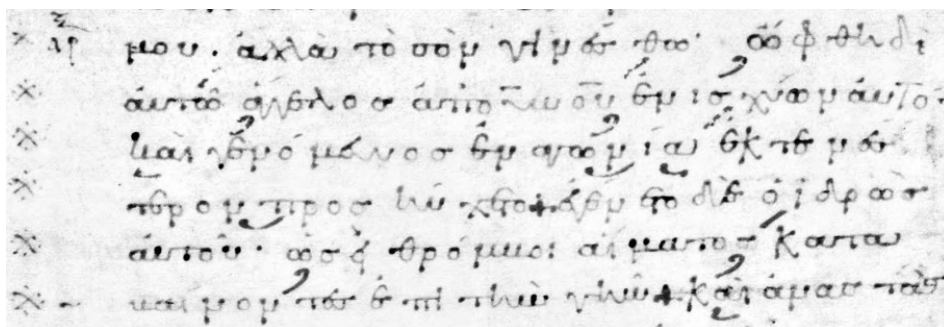 μου. ἀλλὰ τὸ σὸν γινέσθω· ὤφθη δὲ
αὐτῶ ἄγγελος ἀπὸ τοῦ οὐνοῦ ἐνισχύων αὐτόν
καὶ γενόμενος ἐν ἀγωνία ἐκτενέ
στερον προσηύχετο + ἐγένετο δὲ ὁ ἱδρὼς
αὐτοῦ· ὡσεὶ θρόμβοι αἵματος κατα
βαίνοντες ἐπὶ τὴν γῆν + καὶ ἀναστὰς